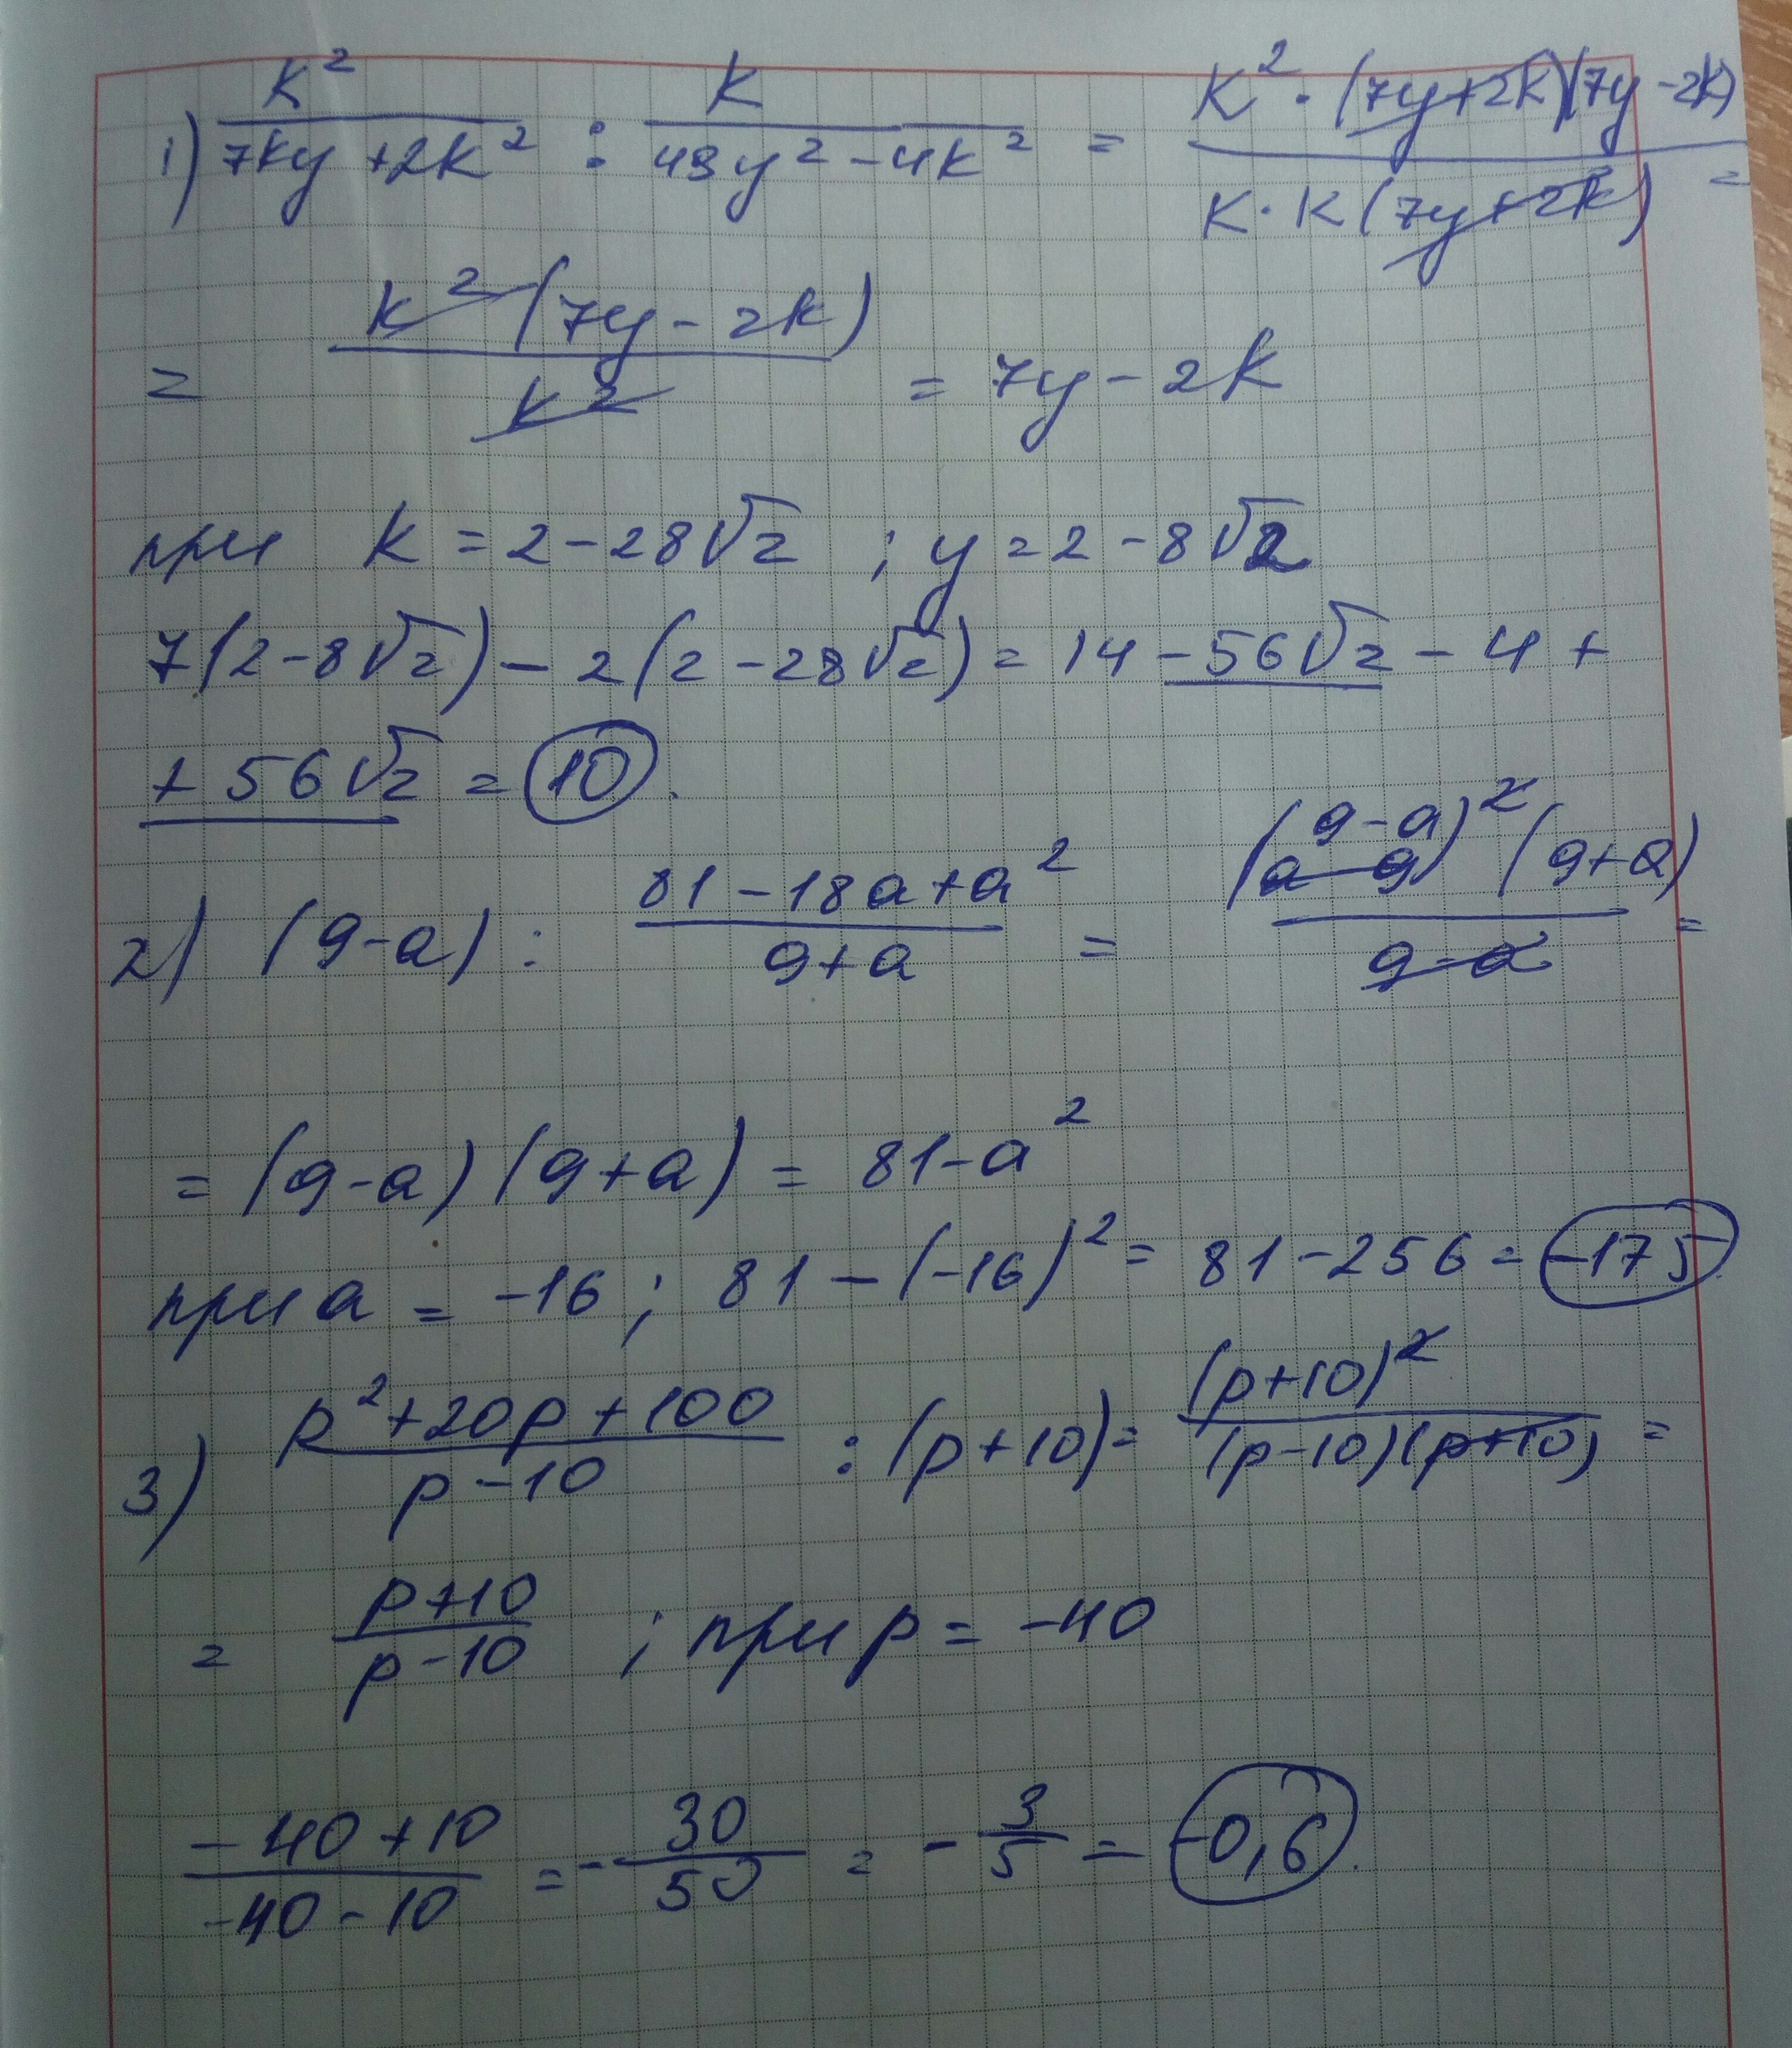 1) k²/(7ky+2k²) : k/(49y²-4k²) = k²·(7y+2k)(7y-2k)/(k·k(7y+2k)) =
= k²(7y-2k)/k² = 7y-2k
при k=2-28√2 ; y=2-8√2
7(2-8√2)-2(2-28√2)=14-56√2-4+
+56√2=10.
2) (9-a) : (81-18a+a²)/(9+a) = (9-a)²(9+a)/(9-a) =
=(9-a)(9+a)=81-a²
при a=-16; 81-(-16)²=81-256=-175.
3) (p²+20p+100)/(p-10) : (p+10)=(p+10)²/((p-10)(p+10)) =
= (p+10)/(p-10) ; при p=-40
(-40+10)/(-40-10) =-30/50 = -3/5 = -0,6.